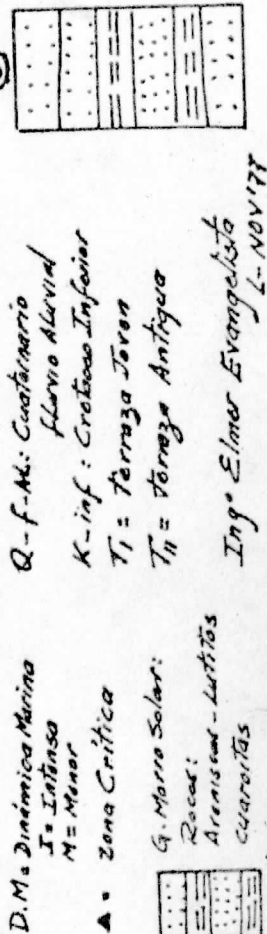 D.M = Dinámica Marina
I = Intensa
M = Menor
▲ = Zona Crítica
G. Morro Solar:
Rocas:
Areniscas - Lutitas
cuarcitas
Q-f-AL: Cuaternario
fluvio Aluvial
K-inf: Cretaceo Inferior
TI = Terraza Joven
TII = Terraza Antigua
Ingº Elmer Evangelista
L-NOV'77